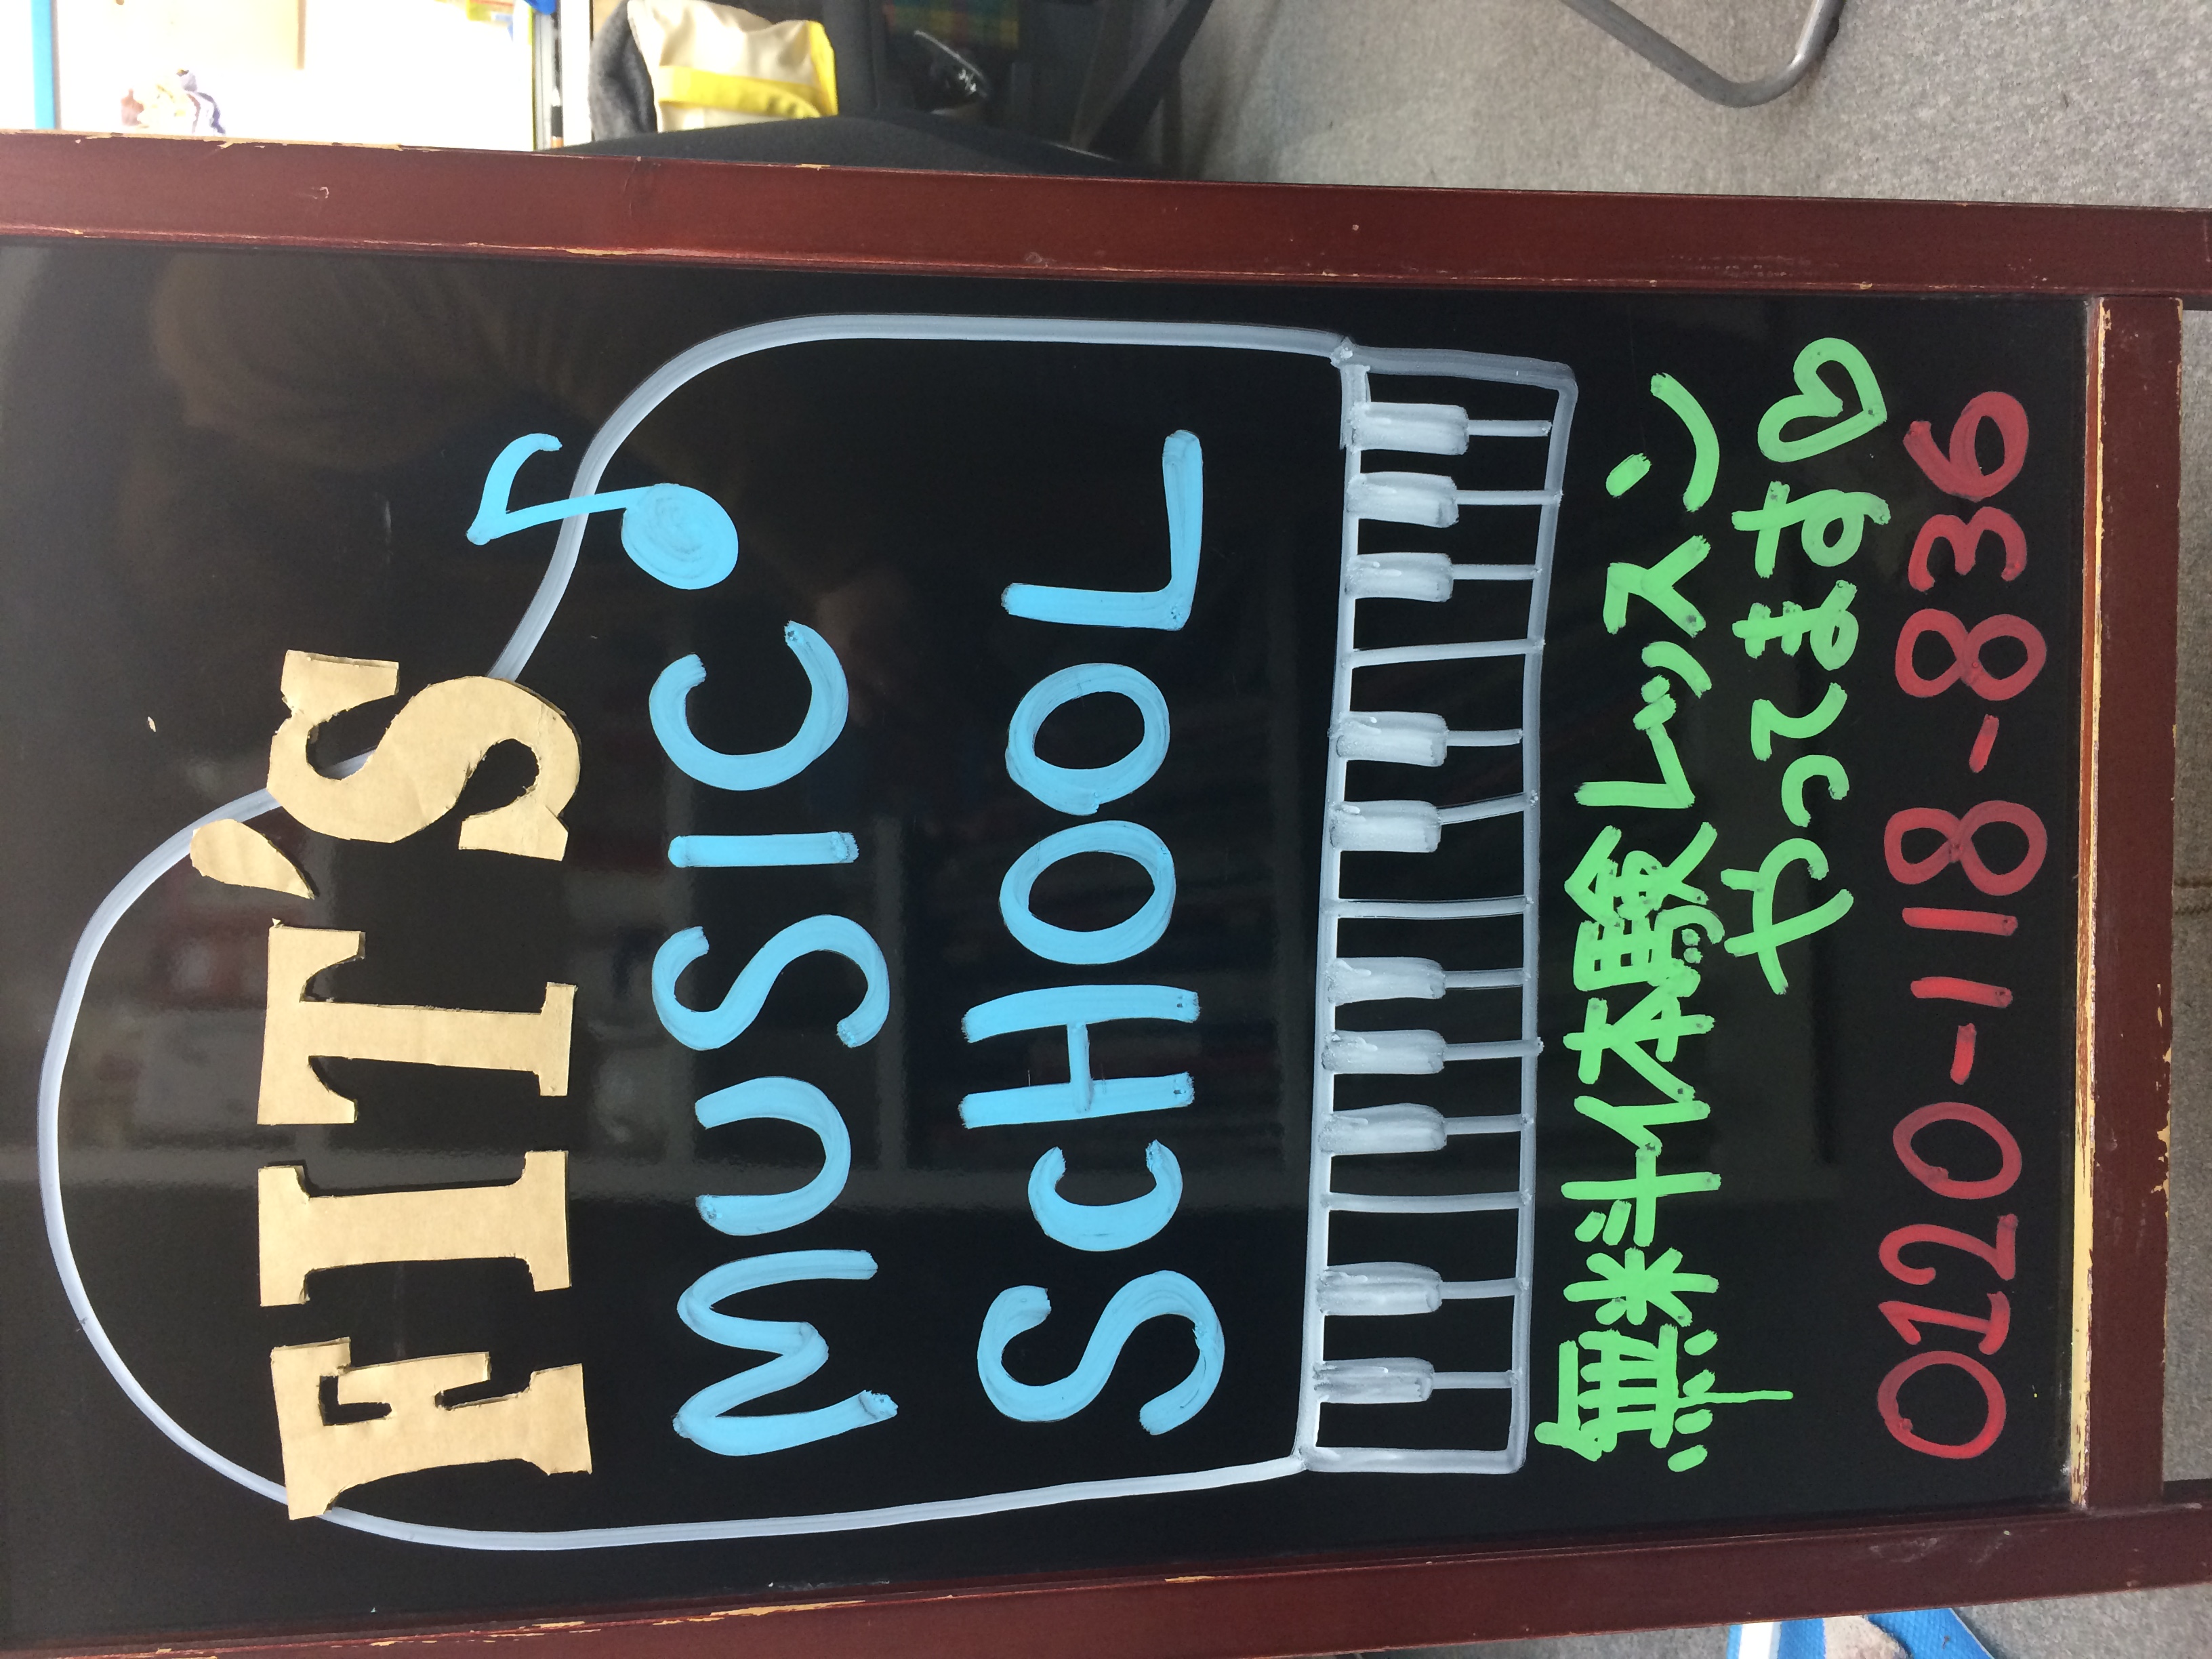 FIT'S
MUSIC♪
SCHOOL
無料体験レッスン
やってます♡
0120-118-836